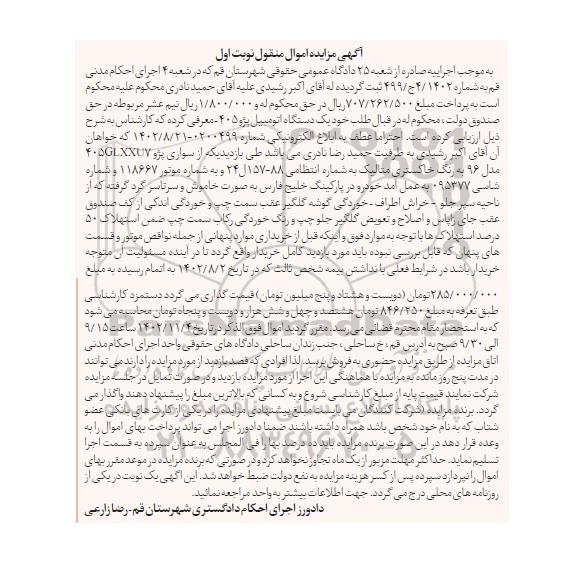 آگهی مزایده اموال منقول نوبت اول
به موجب اجراییه صادره از شعبه ۲۵ دادگاه عمومی حقوقی شهرستان قم که در شعبه ۴ اجرای احکام مدنی
قم به شماره ۴/۱۴۰۲ج/۴۹۹ ثبت گردیده له آقای اکبر رشیدی علیه آقای حمید نادری محکوم علیه محکوم
است به پرداخت مبلغ ۷۰۷/۲۶۲/۵۰۰ ریال در حق محکوم له و ۱/۸۰۰/۰۰۰ ریال نیم عشر مربوطه در حق
صندوق دولت ، محکوم له در قبال طلب خود یک دستگاه اتومبیل پژو ۴۰۵-معرفی کرده که کارشناس به شرح
ذیل ارزیابی کرده است. احتراما عطف به ابلاغ الکترونیکی شماره ۰۲۰۰۴۹۹-۱۴۰۲/۸/۲۱ که خواهان
آن آقای اکبر رشیدی به طرفیت حمید رضا نادری می باشد طی بازدیدیکه از سواری پژو ۴۰۵GLXXU۷
مدل ۹۶ به رنگ خاکستری متالیک به شماره انتظامی ۸۸-۱۵۷ل۲۴ و به شماره موتور ۱۱۸۶۶۷ و شماره
شاسی ۰۹۵۳۷۷ به عمل آمد خودرو در پارکینگ خلیج فارس به صورت خاموش و سرتاسر گرد گرفته که از
ناحیه سپر جلو – خراش اطراف – خوردگی گوشه گلگیر عقب سمت چپ و خوردگی اندکی از کف صندوق
عقب جای زاپاس و اصلاح و تعویض گلگیر جلو چپ و رنگ خوردگی رکاب سمت چپ ضمن استهلاک ۵۰
درصد استهلاک ها با توجه به موارد فوق و اینکه قبل از خریداری موارد پنهانی از جمله نواقص موتور و قسمت
های پنهان که قابل بررسی نبوده باید مورد بازدید کامل خریدار واقع گردد تا در آینده مسئولیت آن متوجه
خریدار باشد در شرایط فعلی با نداشتن بیمه شخص ثالث که در تاریخ ۱۴۰۲/۸/۲ به اتمام رسیده به مبلغ
۲۸۵/۰۰۰/۰۰۰ تومان (دویست و هشتاد و پنج میلیون تومان) قیمت گذاری می گردد دستمزد کارشناسی
طبق تعرفه به مبلغ ۸۴۶/۲۵۰ تومان هشتصد و چهل و شش هزار و دویست و پنجاه تومان محاسبه می شود
که به استحضار مقام محترم قضائی می رسد. مقرر گردید اموال فوق الذکر در تاریخ ۱۴۰۲/۱۱/۴ ساعت ۹/۱۵
الی ۹/۳۰ صبح به آدرس قم ، خ ساحلی ، جنب زندان ساحلی دادگاه های حقوقی واحد اجرای احکام مدنی
اتاق مزایده از طریق مزایده حضوری به فروش برسد. لذا افرادی که قصد بازدید از مورد مزایده را دارند می توانند
در مدت پنج روز مانده به مزایده با هماهنگی این اجرا از مورد مزایده بازدید و در صورت تمایل در جلسه مزایده
شرکت نمایند قیمت پایه از مبلغ کارشناسی شروع و به کسانی که بالاترین مبلغ را پیشنهاد دهند واگذار می
گردد. برنده مزایده (شرکت کنندگان می بایست مبلغ پیشنهادی مزایده را در یکی از کارت های بانکی عضو
شتاب که به نام خود شخص باشد همراه داشته باشند ضمنا دادورز اجرا می تواند پرداخت بهای اموال را به
وعده قرار دهد در این صورت برنده مزایده باید ده درصد بها را فی المجلس به عنوان سپرده به قسمت اجرا
تسلیم نماید. حداکثر مهلت مزبور از یک ماه تجاوز نخواهد کرد و در صورتی که برنده مزایده در موعد مقرر بهای
اموال را نپردازد سپرده پس از کسر هزینه مزایده به نفع دولت ضبط خواهد شد. این آگهی یک نوبت در یکی از
روزنامه های محلی درج می گردد. جهت اطلاعات بیشتر به واحد مراجعه نمائید.
دادورز اجرای احکام دادگستری شهرستان قم - رضا زارعی